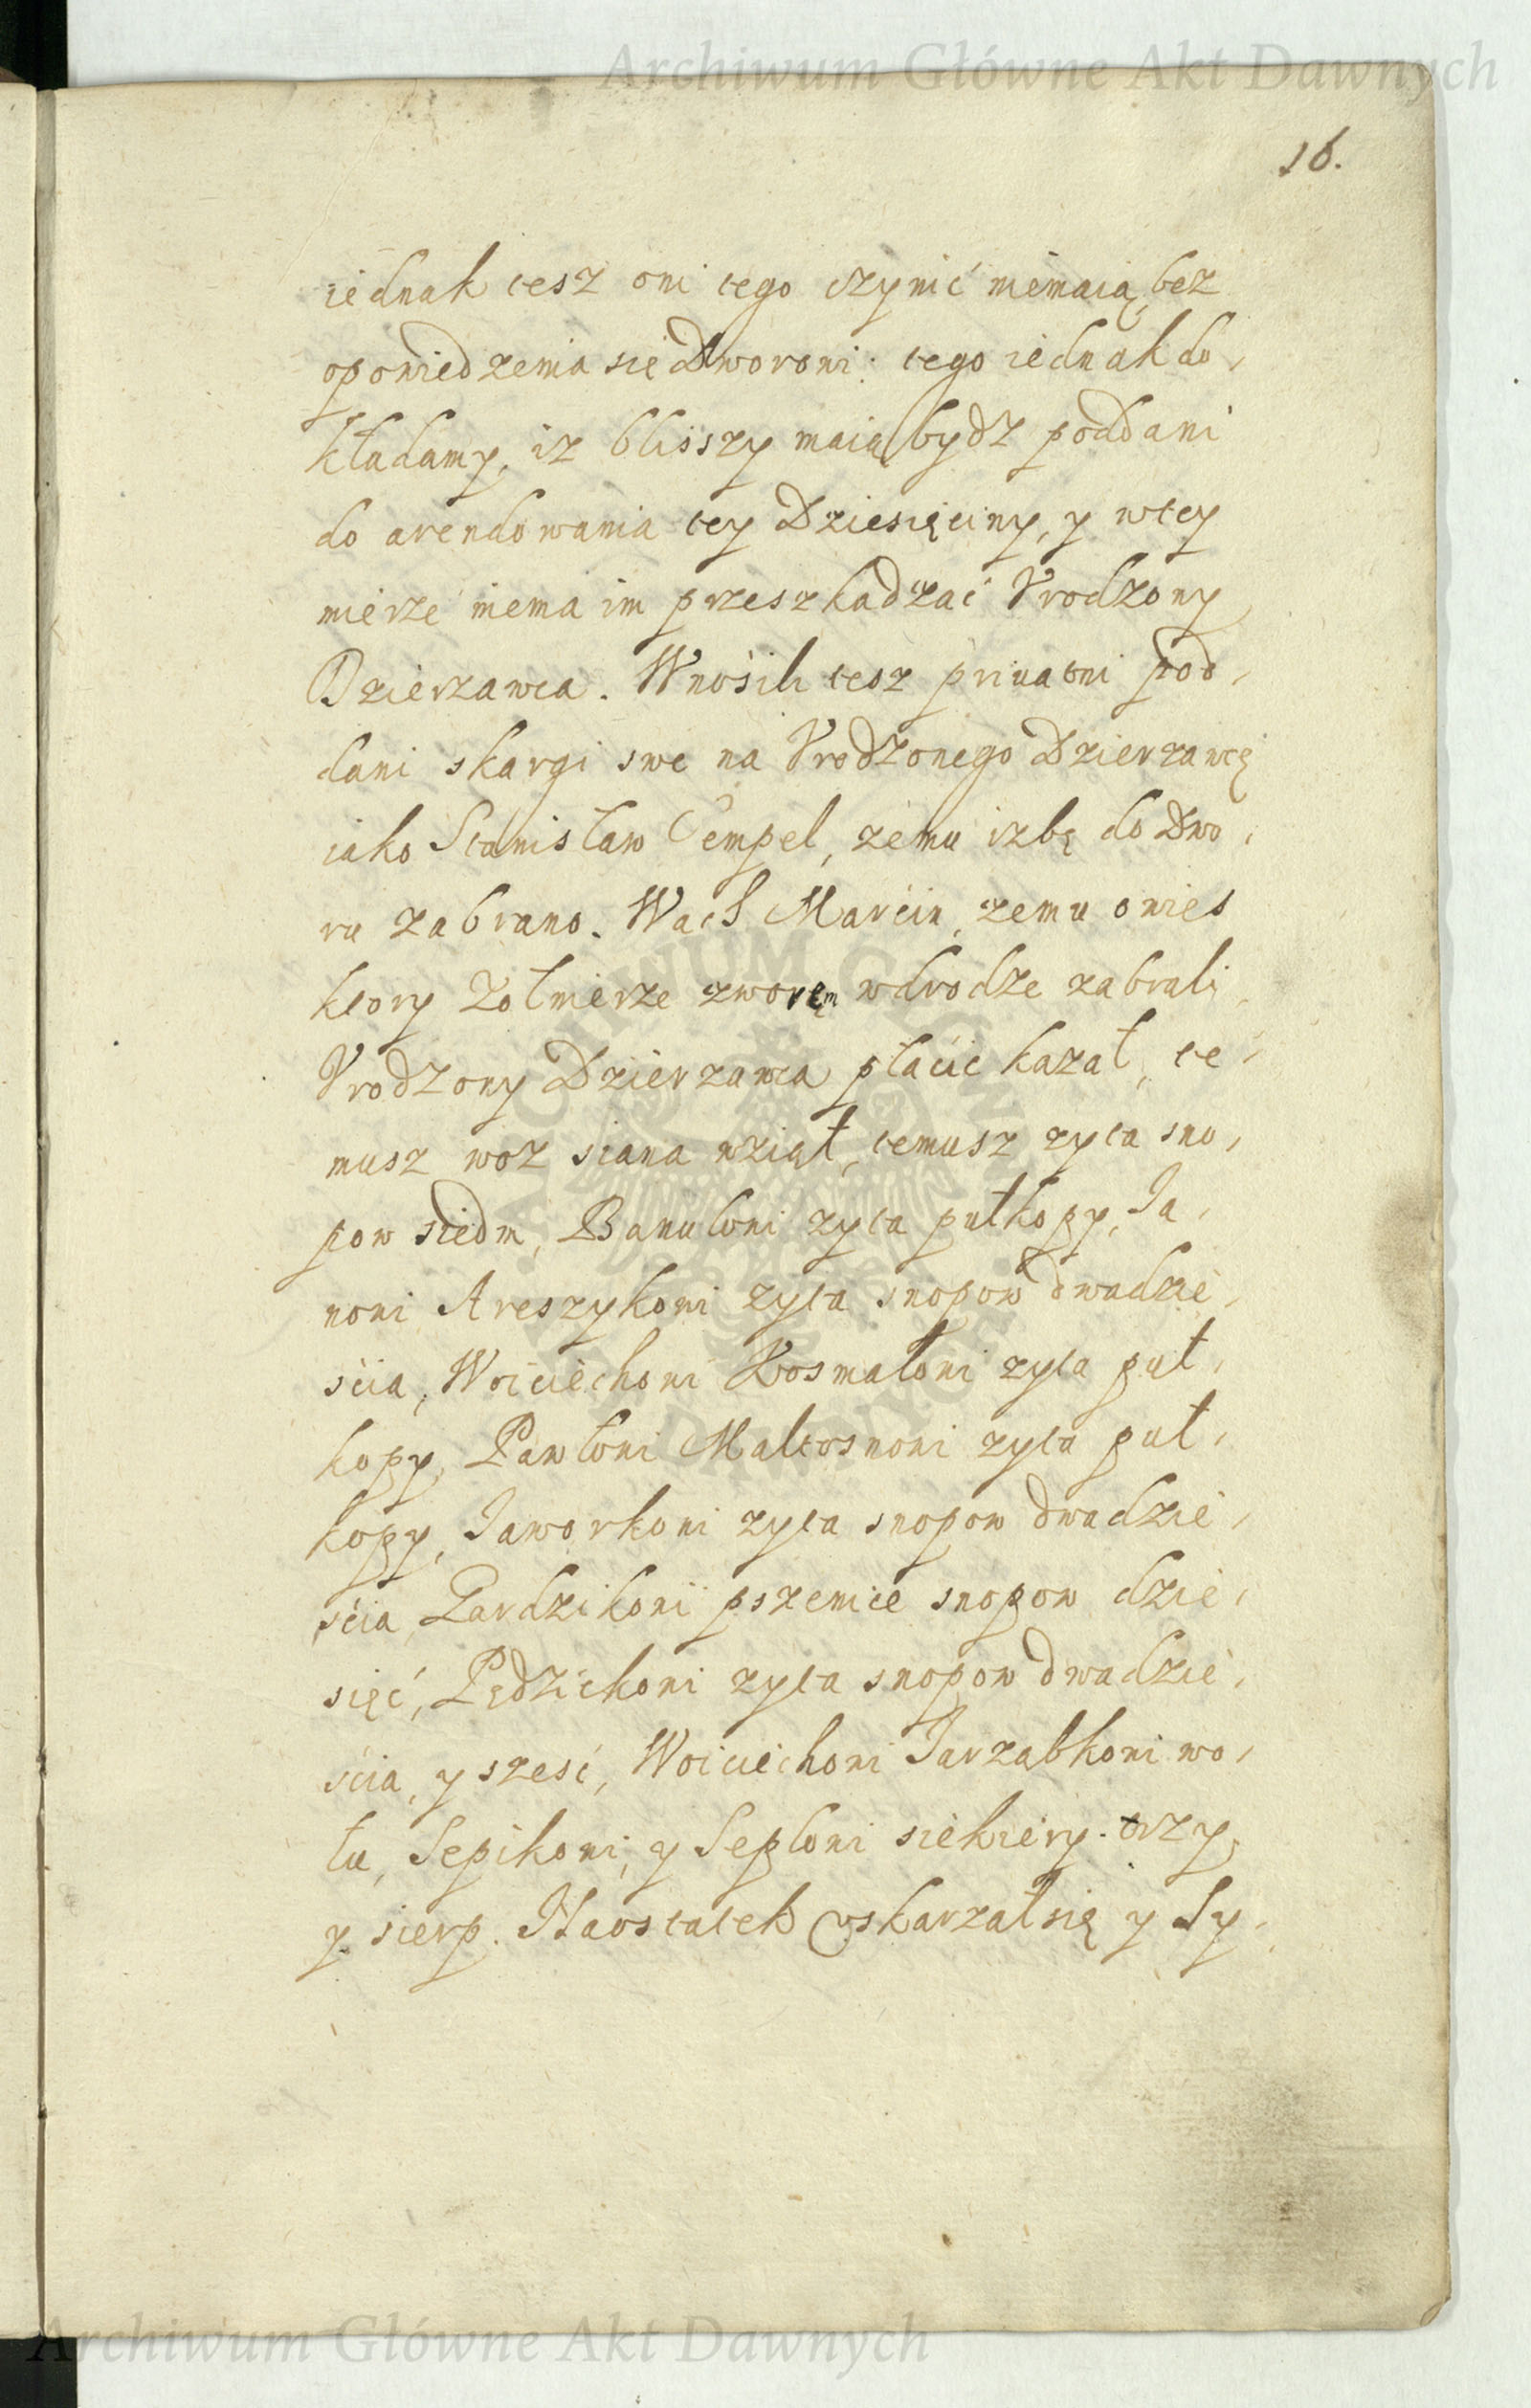 Archiwum Główne Akt Dawnych
16.
iednak tesz oni tego czynić niemaią bez
opowiedzenia się Dworowi. tego iednak do,
kładamy, iz blisszy maią bydz poddani
do arendowania tey Dziesięciny, y wtey
mierze niema im przeszkadzać Vrodzony
Dzierzawca. Wnośili tesz priuatni pod,
dani skargi swe na Vrodzonego Dzierzawcę
iako Stanisław Cempel, zemu izbę do Dwo,
ru zabrano. Wach Marcin, zemu owies
ktory Zołnierze zworem wdrodze zabrali
Vrodzony Dzierzawca płacic kazał, te,
musz woz siana wziął, temusz zyta sno,
pow siedm, Banulowi zyta pułkopy, Ia,
nowi Areszykowi zyta snopow dwadzie,
scia, Woiciechowi Kosmalowi zyta puł,
kopy, Pawłowi Maltosnowi zyta puł,
kopy, Iaworkowi zyta snopow dwadzie,
scia, Pardzikowi pszenice snopow dzie,
sięć, Pędzichowi zyta snopow dwadzie,
scia, y szesć, Woiciechowi Iarząbkowi wo,
łu, Sepikowi, y Seplowi siekiery trzy,
y sierp. Naostatek vskarzał się y Sy,
Archiwum Główne Akt Dawnych